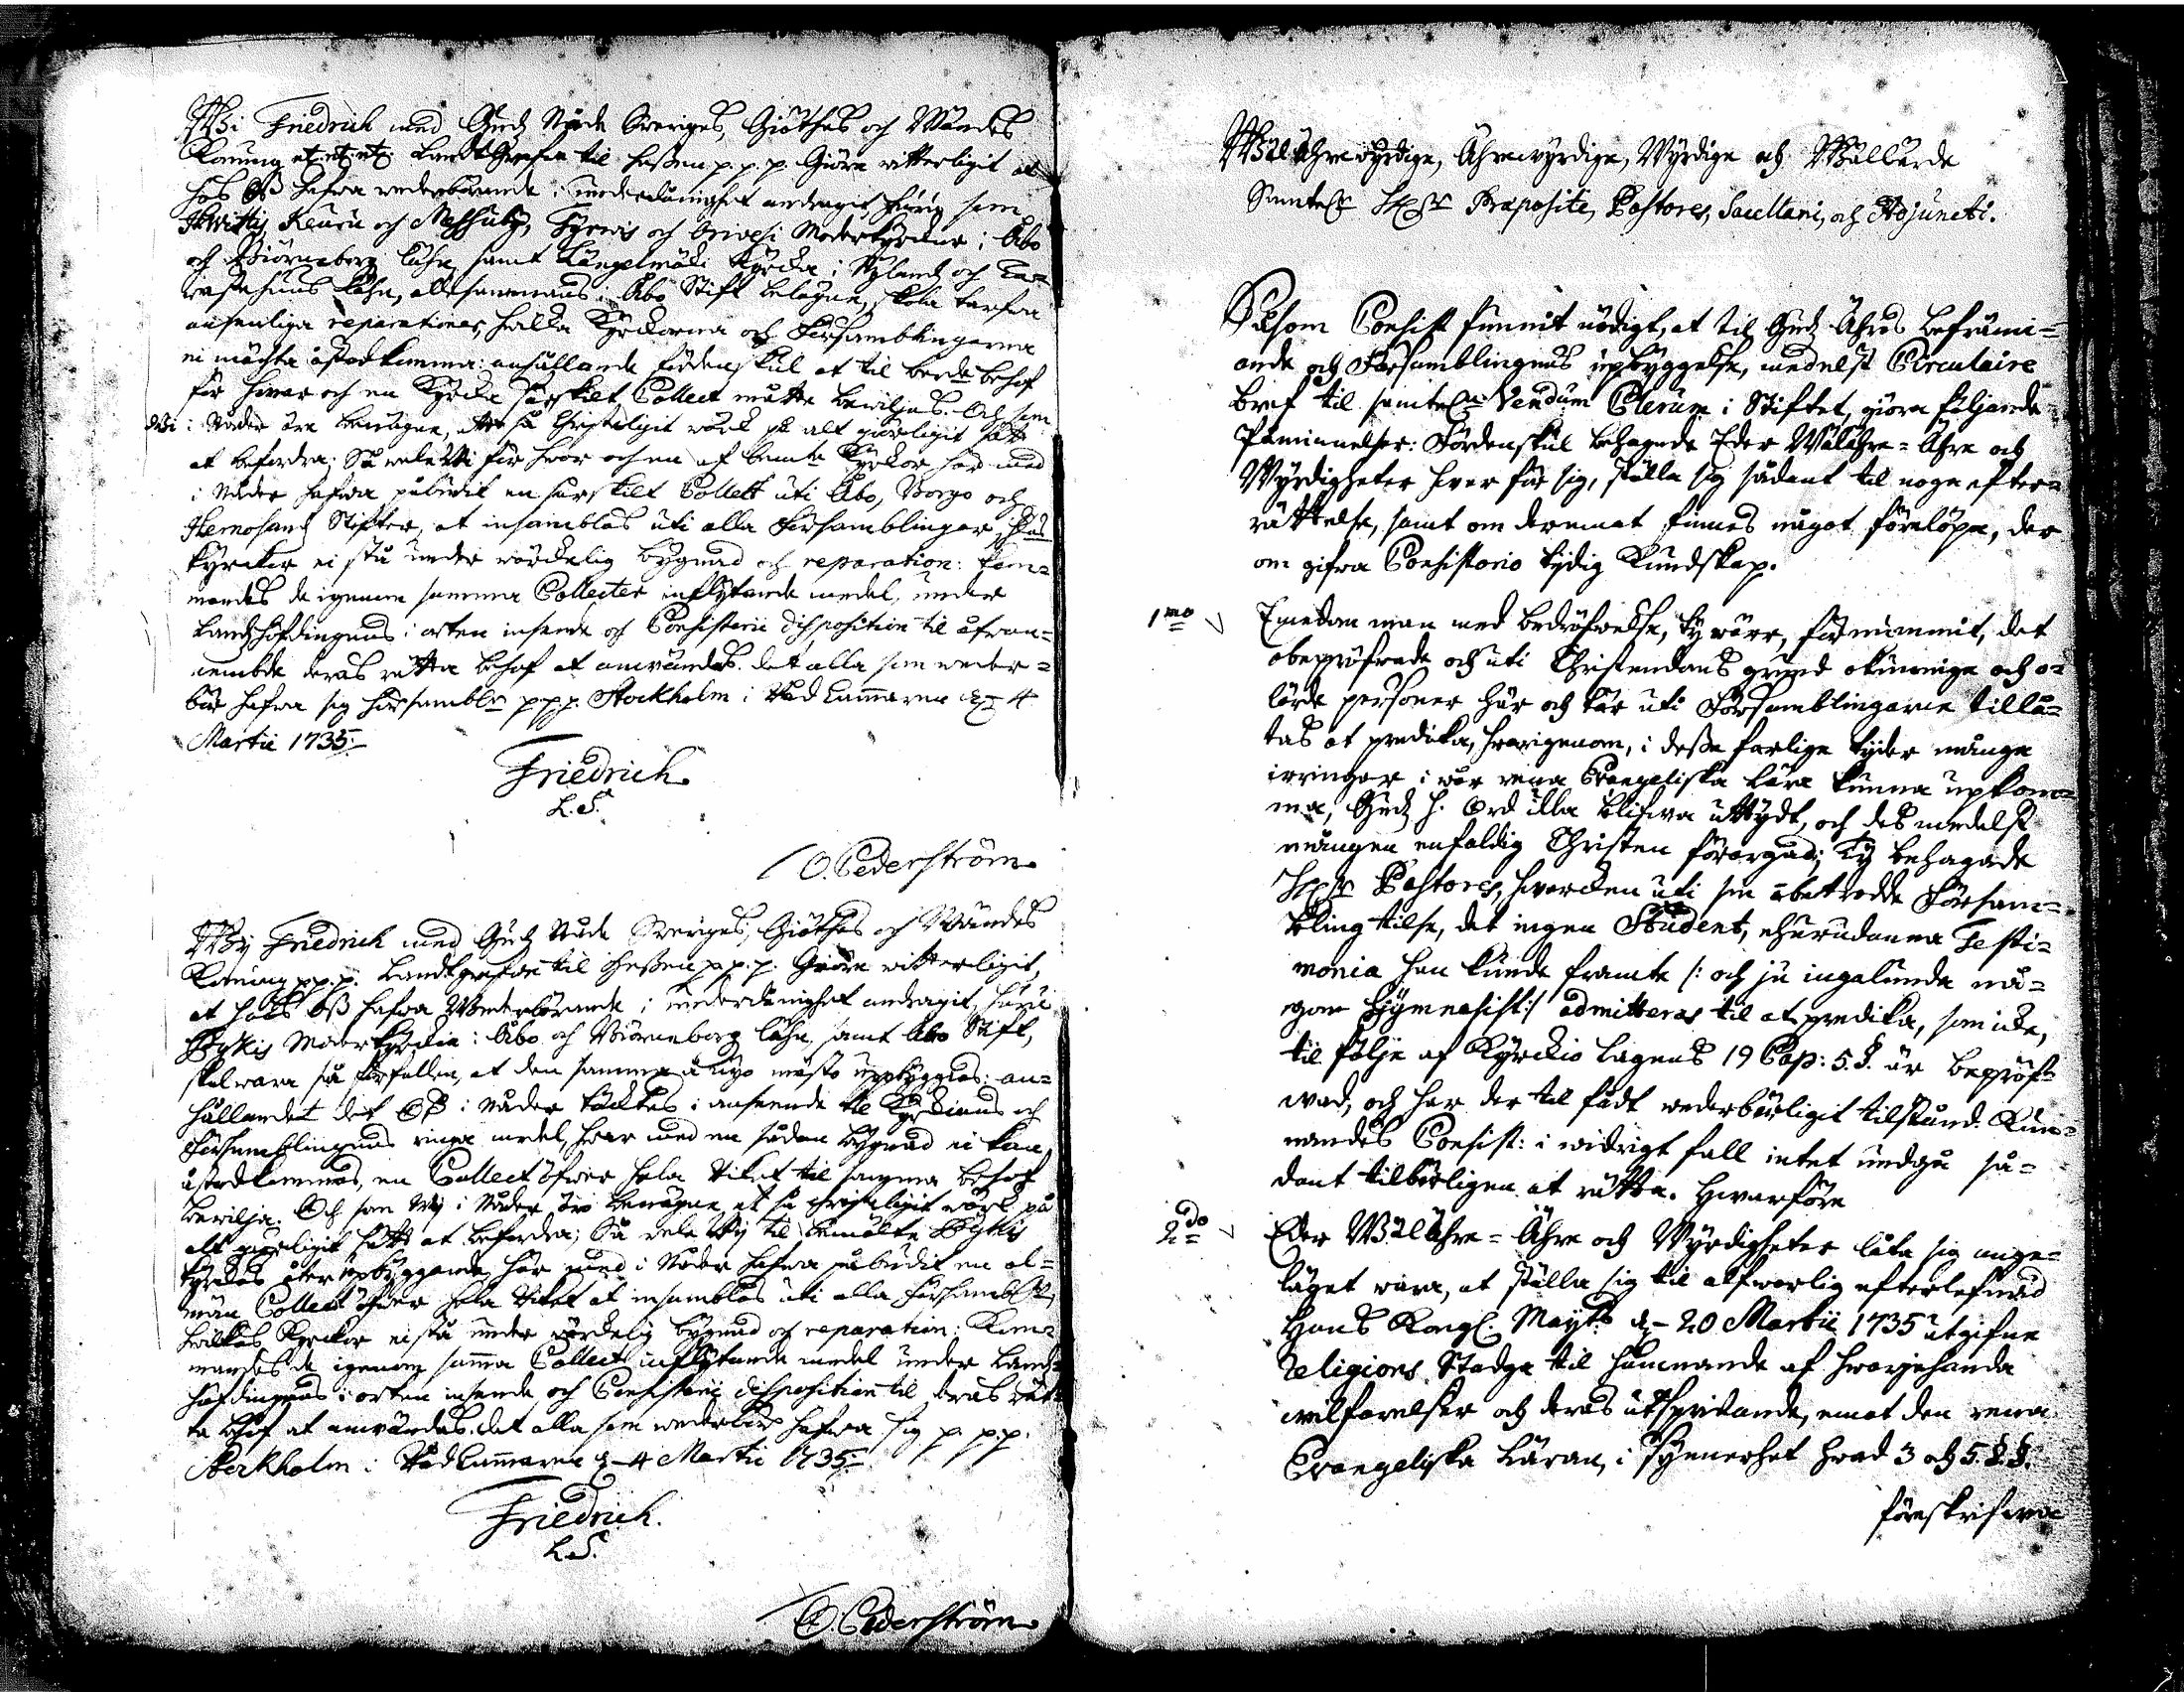 Wi Friedrich med Gudz Nåde Sweriges, Giöthes och Wändes
Konung etc. etc. etc. Landt Grefwe til Hessen p.p.p. Giöre witterligit at
hos Oss hafwa wederbörande i underdånighet andragit, huru som
Hwittis, Keuru och Messuby, Tyrwis och Oriwesi Moderkyrkior i Åbo
och Biörneborg Lähn samt Längelmäki Kyrcka i Nylandz och Ta-
wastehuus Lähn, allesammans i Åbo Stift belägne, skola tarfwa
ansenliga reparationer, hwilka Kyrckorna och Församblingarna
ei mächta åstadkomma: anhållande fördenskul at til berde behof
för hwar och en Kyrcka särskilt Collect måtte bewiljas. Och som
Wi i Nåder äre benägne, et så Christeligit wärk på alt giörligit sätt
at befordra; Så wele Wi för hwar och en af bemte Kyrckor här med
i Nåder hafwa påbudit en särskilt Collect uti Åbo, Borgo och
Hernosandz Stifter, at insamblas uti alla Församblingar, hwars
kyrckor ei stå under wärckelig bygnad och reparation: kom-
mandes de igenom samma Collecter inflytande medel, under
Landzhöfdingens i orten inseende och Consistorii disposition til åfwan-
nembde deras rätta behof at användas. Det alla som weder-
bör hafwa sig hörsambln ppp. Stockholm i Råd Cammaren d. 4
Martii 1735.
Friedrich.
L.S.
O. Cederström
Wy Friedrich med Gudz Nåde Sweriges, Giöthes och Wändes
Konung p.p.p. Landtgrefwe til Hessen p.p.p. Giöre witterligit,
at hos Oss hafwa Wederbörande i underdånighet andragit, huru
Pykis Moderkyrckia i Åbo och Biörneborg Lähn samt Åbo Stift,
skal wara så förfallen, at den samma å nyo måste uppbyggas: an-
hållandet det Oss i Nåder täcktes i anseende til Kyrckians och
Församblingens ringa medel, hwar med en sådan bygnad ei kan
åstadkommas, en Collect öfwer hela Riket til samma behof
bewilja. Och som Wij i Nåder äre benägne, et så christeligit wärk på
alt giörligit sätt at befordra; Så wele Wij til bemälte Pykis
kyrckas återupbyggande, här med i Nåder hafwa påbudit en al-
män Collect öfwer hela Riket at insamblas uti alla Församblr
hwilkas Kyrckor ei stå under wärckelig bygnad och reparation; Kom-
mandes de igenom samma Collect inflytande medel under Landz-
höfdingens i orten inseende och Consistorii disposition til deras rät-
ta behof at användas. Det alla som wederbör hafwa sig p. p.p.
Stockholm i Råd Cammaren d. 4 Martii 1735.
Friedrich.
L.S.
O. Cederström
Wäl Ährewyrdige, Ährewyrdige, Wyrdige och Wällärde
Samtel. Hrr Præposite, Pastores, Sacellani, och Adjuncti.
Såsom Consist funnit nödigt, at til Gudz Ähres befrämi-
ande och Församblingens upbyggelse, medelst Circulaire
bref til samteln Vendum Clerum i Stiftet, giöra följande
Påminnelser: Fördenskul behagade Eder Wälähre- Ähre och
Wyrdigheter hwar för sig, ställa sig sådant til noga efter-
rättelse, samt om deremot finnes något förelöpa, der
om gifwa Consistorio tydig Kundskap.
1mo Emedan man med bedröfwelse, ty wärr, förnummit, det
obepröfwade och uti Christendoms grund okunnige och o-
lärde personer här och där uti Församblingarne tillå-
tas at predika, hwarigenom, i desse farlige tyder mångre
irringar i wår rena Evangeliska lära kunna upkom-
ma, Gudz H. Ord illa blifwa uttydt, och des medelst
mången enfaldig Christen förargad; Ty behagade
Hrr Pastores, hwarden uti sin åbetrodde Försam-
bling tilse, det ingen Student, ehurudanna Testi-
monia han kunde framte /: och ju ingalunda nå-
gon Gymnasist:/ admitteras til at predika, som icke,
til följe af Kyrckio Lagens 19 Cap: 5. §. är bepröf-
wad, och har der til fådt wederbörligit tilstånd. Kun-
nandes Consist: i widrigt fall intet undgå så-
dant tilbörligen at rätta. Hwarföre
2do Eder Wäl Ähre- Ähre och Wyrdigheter låta sig ange-
läget wara, at ställa sig til alfwarlig efterlefnad
Hans Kongl. Mayts d. 20 Martii 1735 utgifne
Religions Stadga til hämnande af hwarjehanda
wilfarelser och deras utspridande, emot den rena
Evangeliska Läran, i synnerhet hwad 3 och 5. §.§.
föreskrifwa